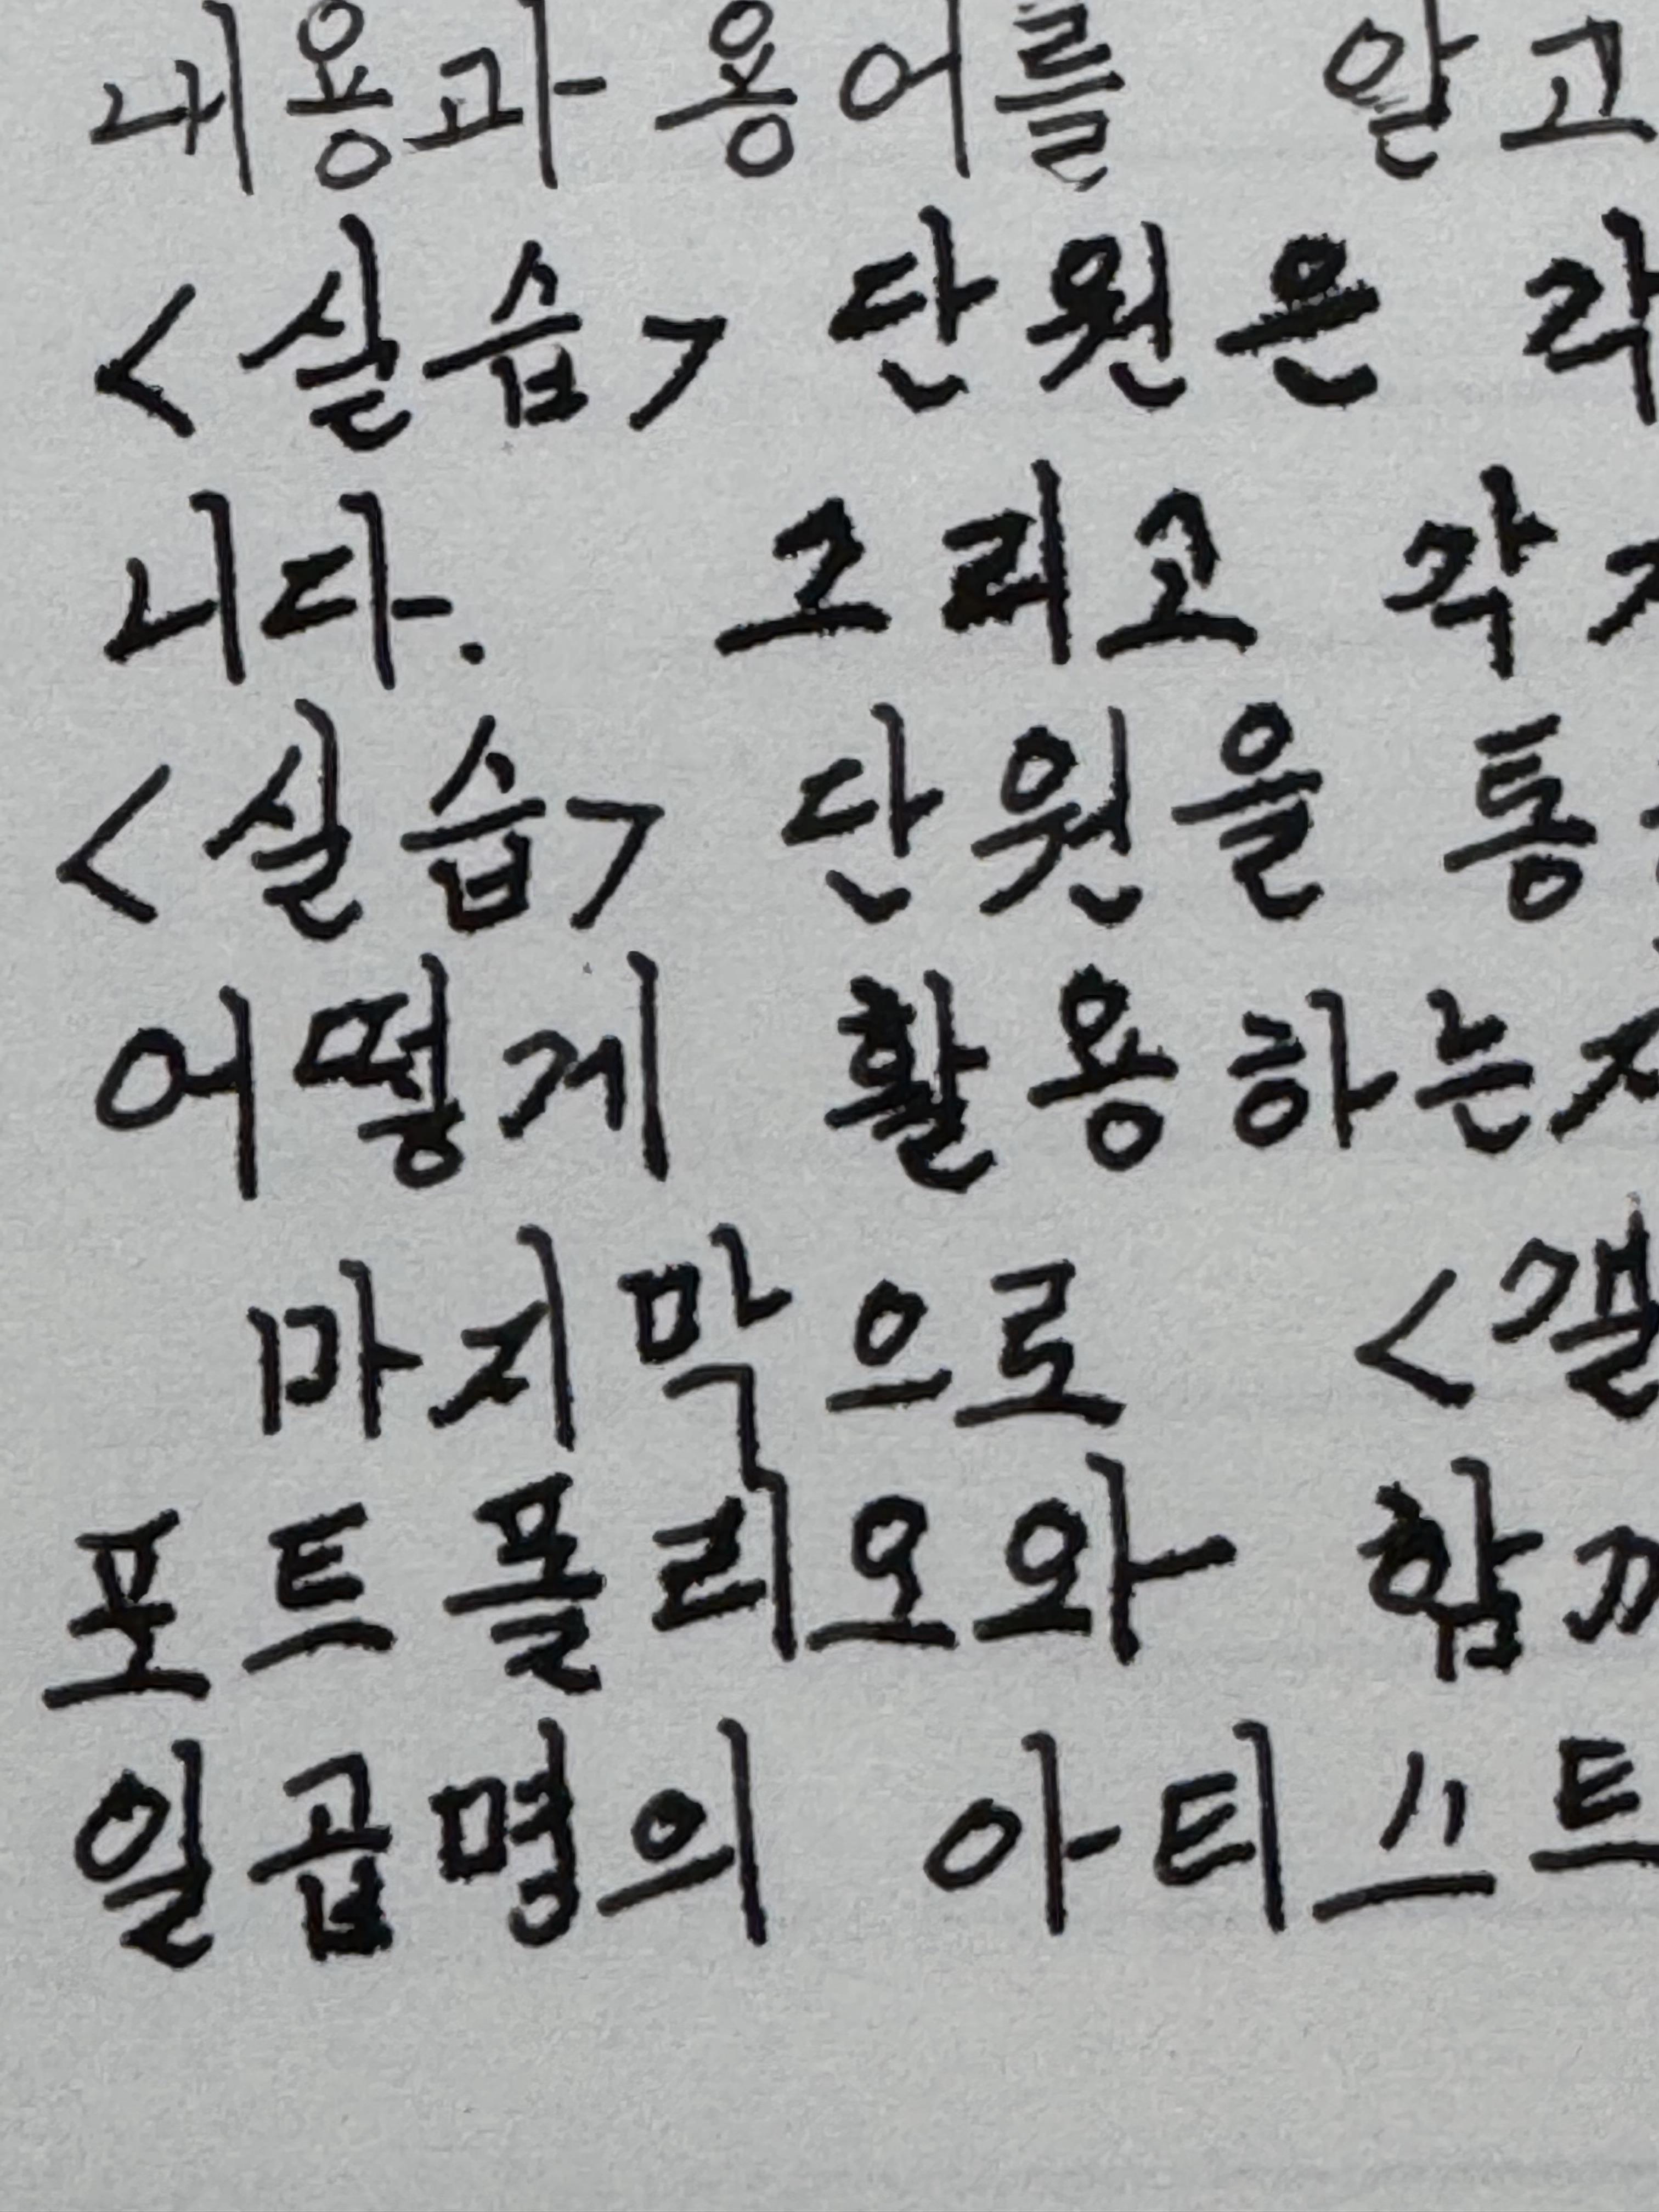 내용과 용어를 알고
<실습> 단원은
니다. 그리고 각
<실습> 단원을
어떻게 활용하는지
마지막으로
포트폴리오와 함께
일곱명의 아티스트